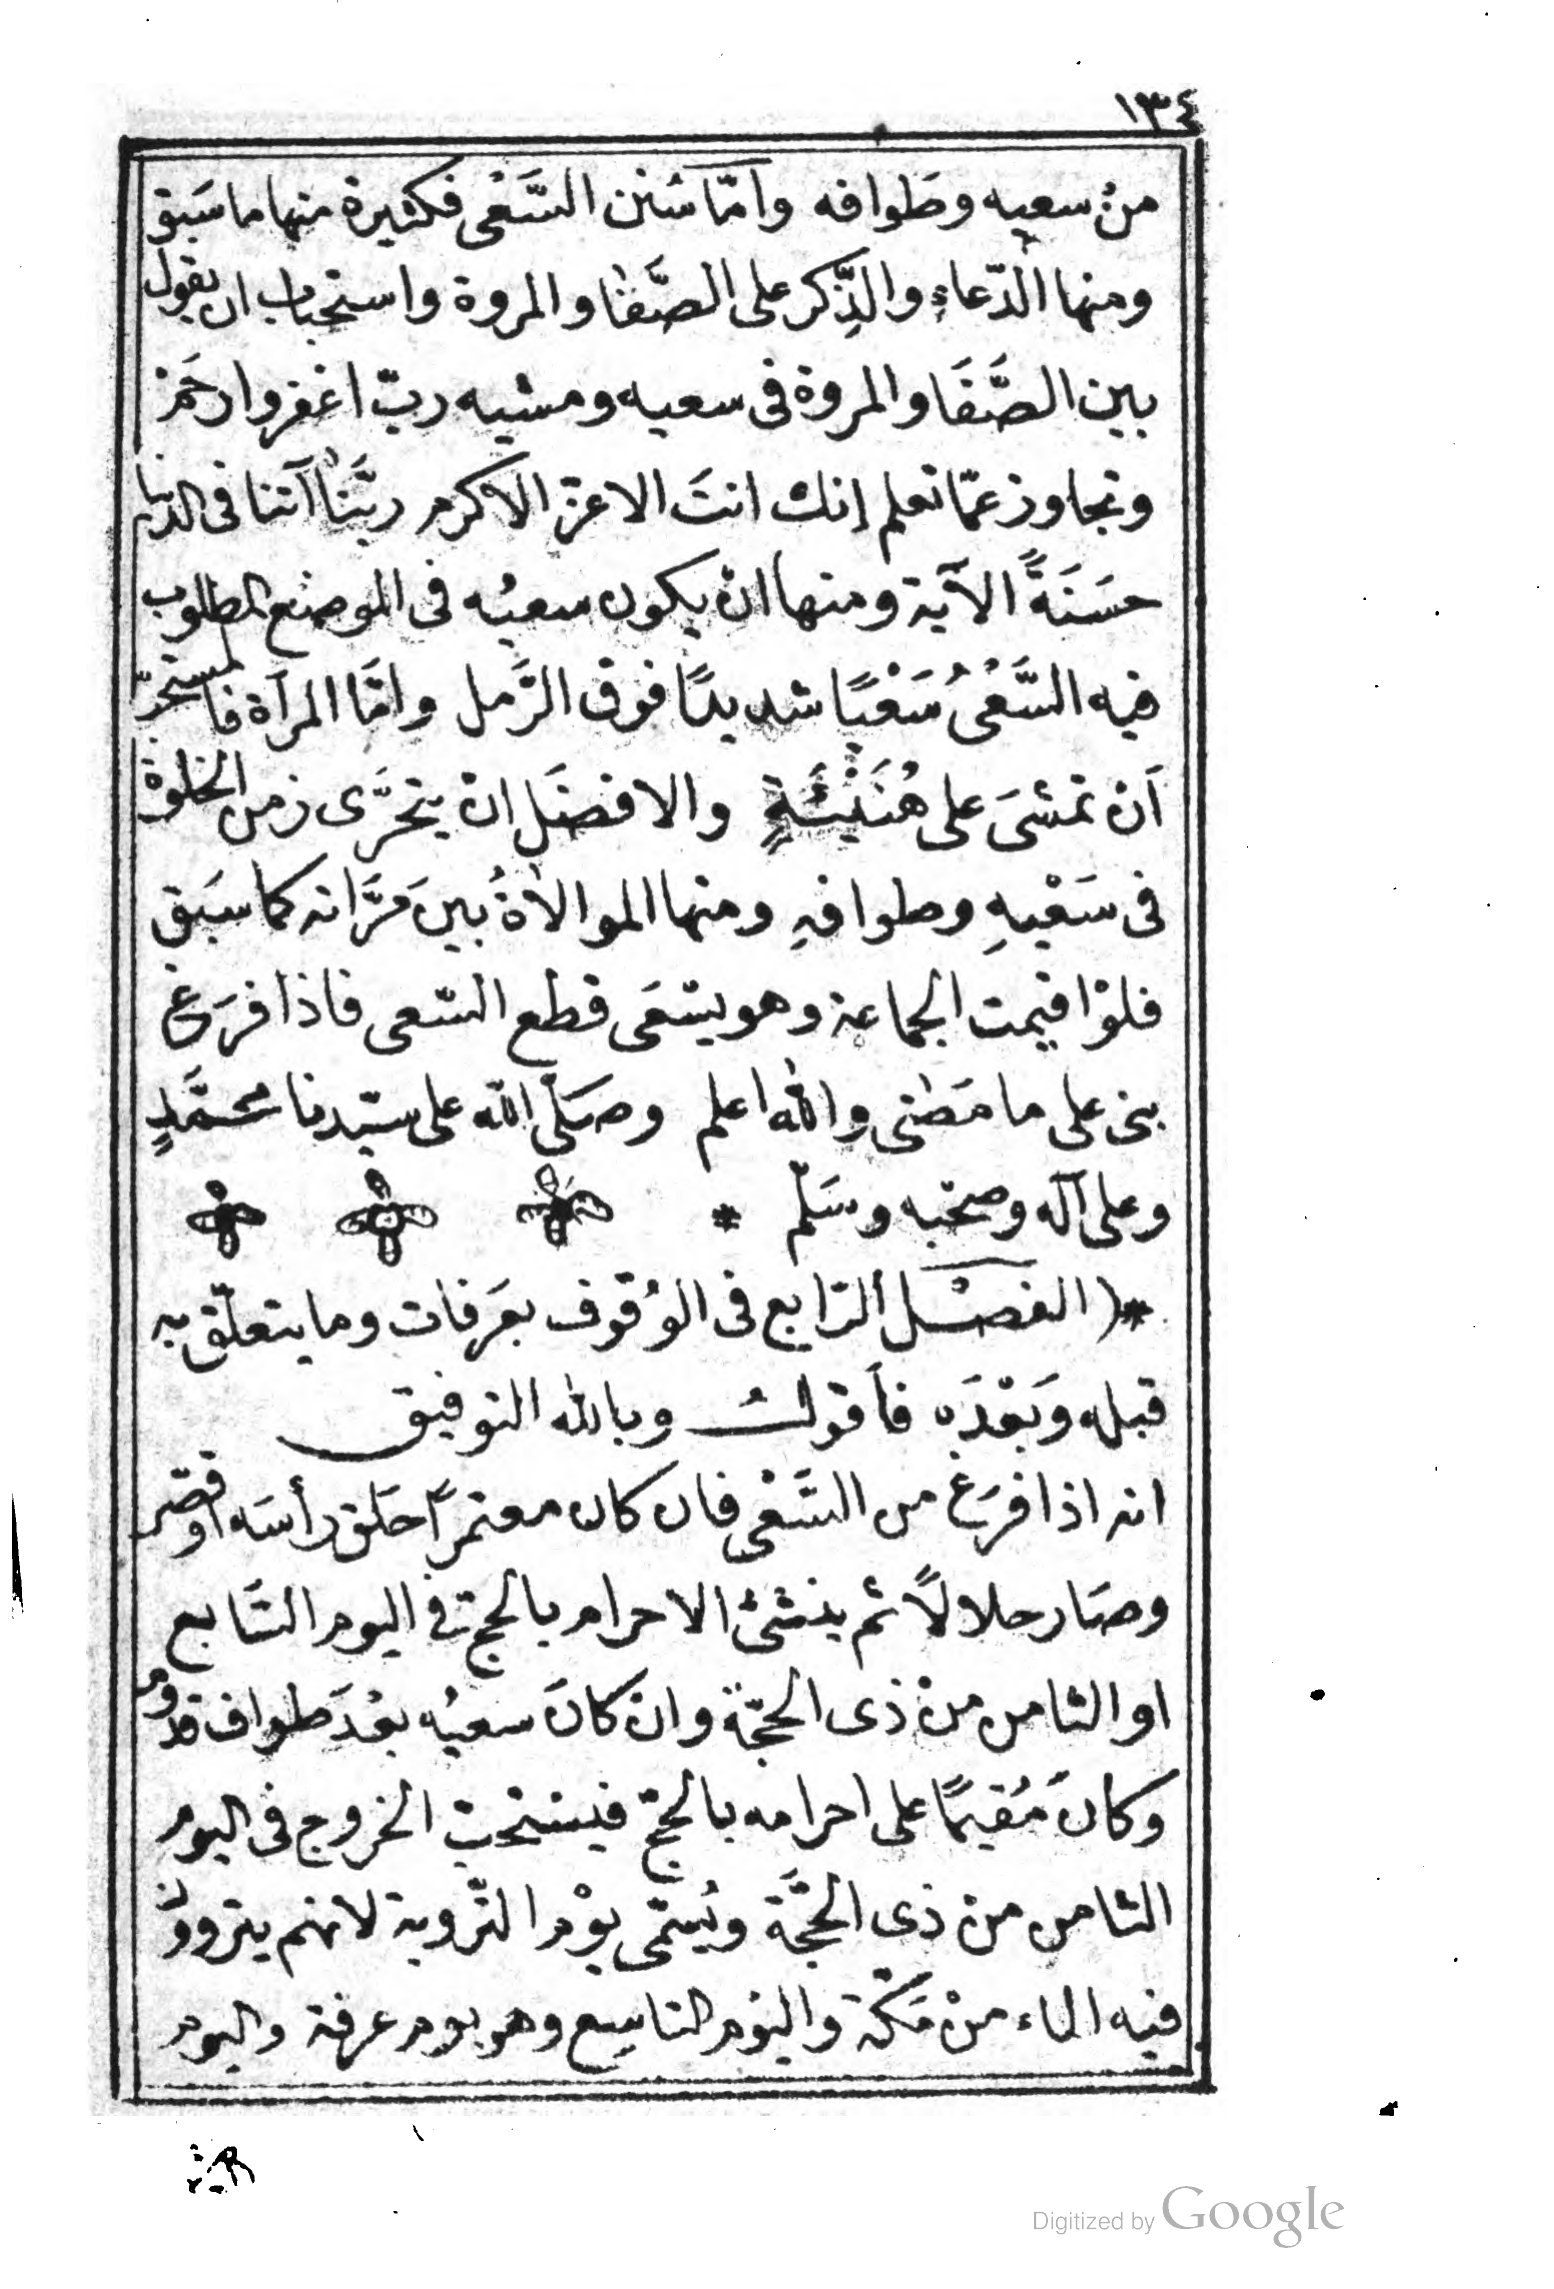 ١٣٤
منْ سعيه وطَوافه وامّا سُنن السَّعْى فكثيرة منها ما سَبق
ومنها الدّعاء والذِّكر على الصَّفا والمروة واستحباب ان يقول
بين الصَّفَا والمروة فى سعيه ومشيه ربّ اغفر وارحَمْ
وتجاوز عمّا تعلم إنك انتَ الاعزّ الاكرم ربَّنا آتنا فى الدنيا
حسَنَةً الآية ومنها انْ يكون سعيُه فى الموضع المطلوب
فيه السَّعْىُ سَعْيًا شديدًا فوق الرَّمل وامَّا المرآة فالمستحبّ
اَنْ تمشىَ على هُنَيْئَةٍ والافضَل انْ يتحرَّى زمن الخلوة
فى سَعْيهِ وطوافهِ ومنها الموالاةُ بينَ مَرَّاته كما سبَق
فلوْ اقيمت الجماعة وهو يسْعَى قطع السّعى فاذا فرَغ
بنى على ما مَضٰى والله اعلم وصَلّى الله على سيّدنا محمَّدٍ
وعلى آله وصحْبه وسَلّم *
*( الفصْل الرّابع فى الوُقوف بعَرفات وما يتعلّق به
قبله وَبعْدَه فأقولُ وبالله التوفيق
انه اذا فرَغ من السَّعْى فان كان معتمرًا حَلق رأسَه اوقصّر
وصَار حلالًا ثم ينشئ الاحرام بالحجّ فى اليوم السَّابع
او الثامن منْ ذى الحجّة وانْ كانَ سعيُه بعْدَ طواف قدوم
وكانَ مُقيمًا على احرامه بالحجّ فيستحبّ الخروج فى اليوم
الثامن منْ ذى الحجَّة ويُسمّى يوْم التّروية لانهم يتروونْ
فيه الماء منْ مَكّة واليوْم التاسِع وهو يوم عرفة واليوم
Digitized by Google